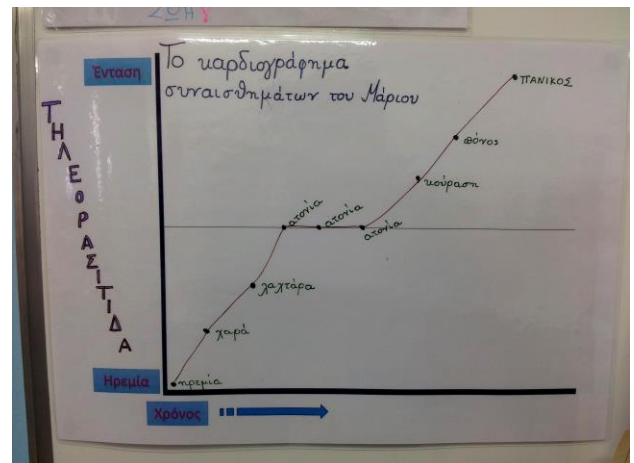 ΖΩΗ
Ένταση
Το καρδιογράφημα
συναισθημάτων του Μάριου
ΤΗΛΕΟΡΑΣΙΤΙΔΑ
ΠΑΝΙΚΟΣ
πόνος
κούραση
ατονία
ατονία
ατονία
λαχτάρα
χαρά
ηρεμία
Ηρεμία
Χρόνος